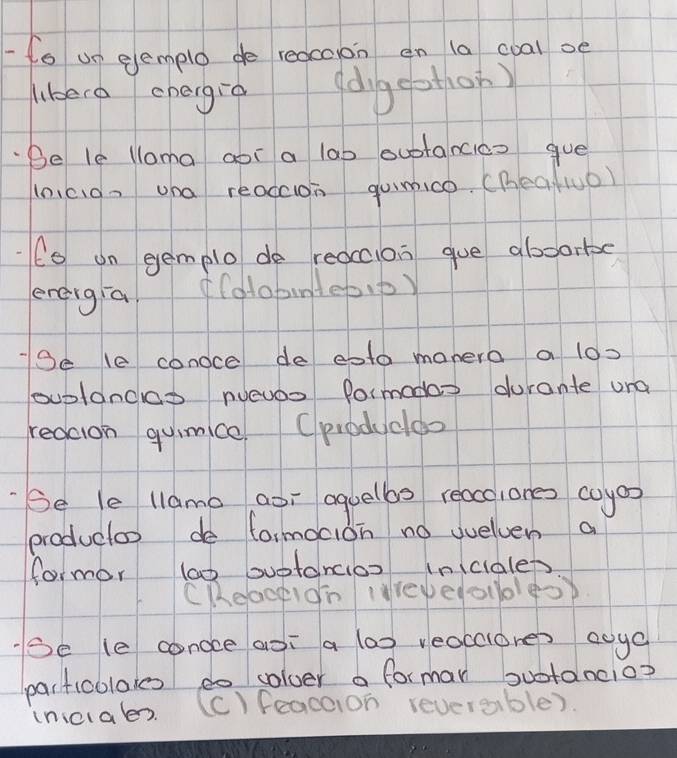 - Es un ejemplo de reacción en la cual se
libera energía (digestión)
· Se le llama así a las sustancias que
inician una reacción químico. (Reativo)
- Es un ejemplo de reacción que absorbe
energía. (fotosíntesis)
- Se le conoce de esta manera a las
sustancias nuevas formadas durante una
reacion química. (productos
- Se le llama así aquellas reacciones cuyos
productos de formación no vuelven a
formar las sustancias iniciales.
(Reacción irreversibles).
- Se le conoce así a las reacciones cuya
particolares es volver a formar sustancias
iniciales. (c) Reacción reversible).